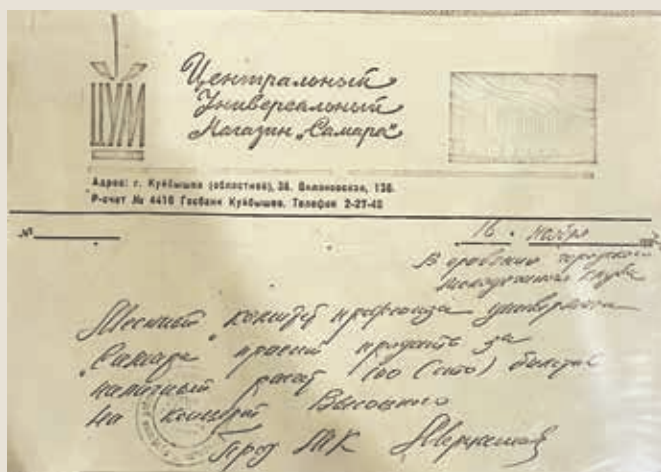 ЦУМ
Центральный
Универсальный
Магазин „Самара"
Адрес: г. Куйбышев (областной), 36.
Р-счет № 4416 Госбанк Куйбышев. Телефон 2-27-40
„№
16. ноября
В правление городского
молодежного клуба
Местный комитет профсоюза универмага
„Самара" просит продать за
наличный расчет 100 (сто) билетов
на концерт Высоцкого
Пред МК